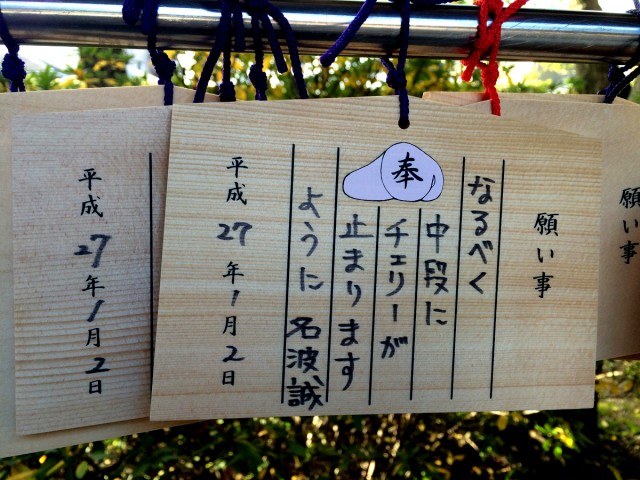 願い事
なるべく
中段に
チェリーが
止まります
ように 名波誠
奉
平成27年1月2日
平成27年1月2日
願い事